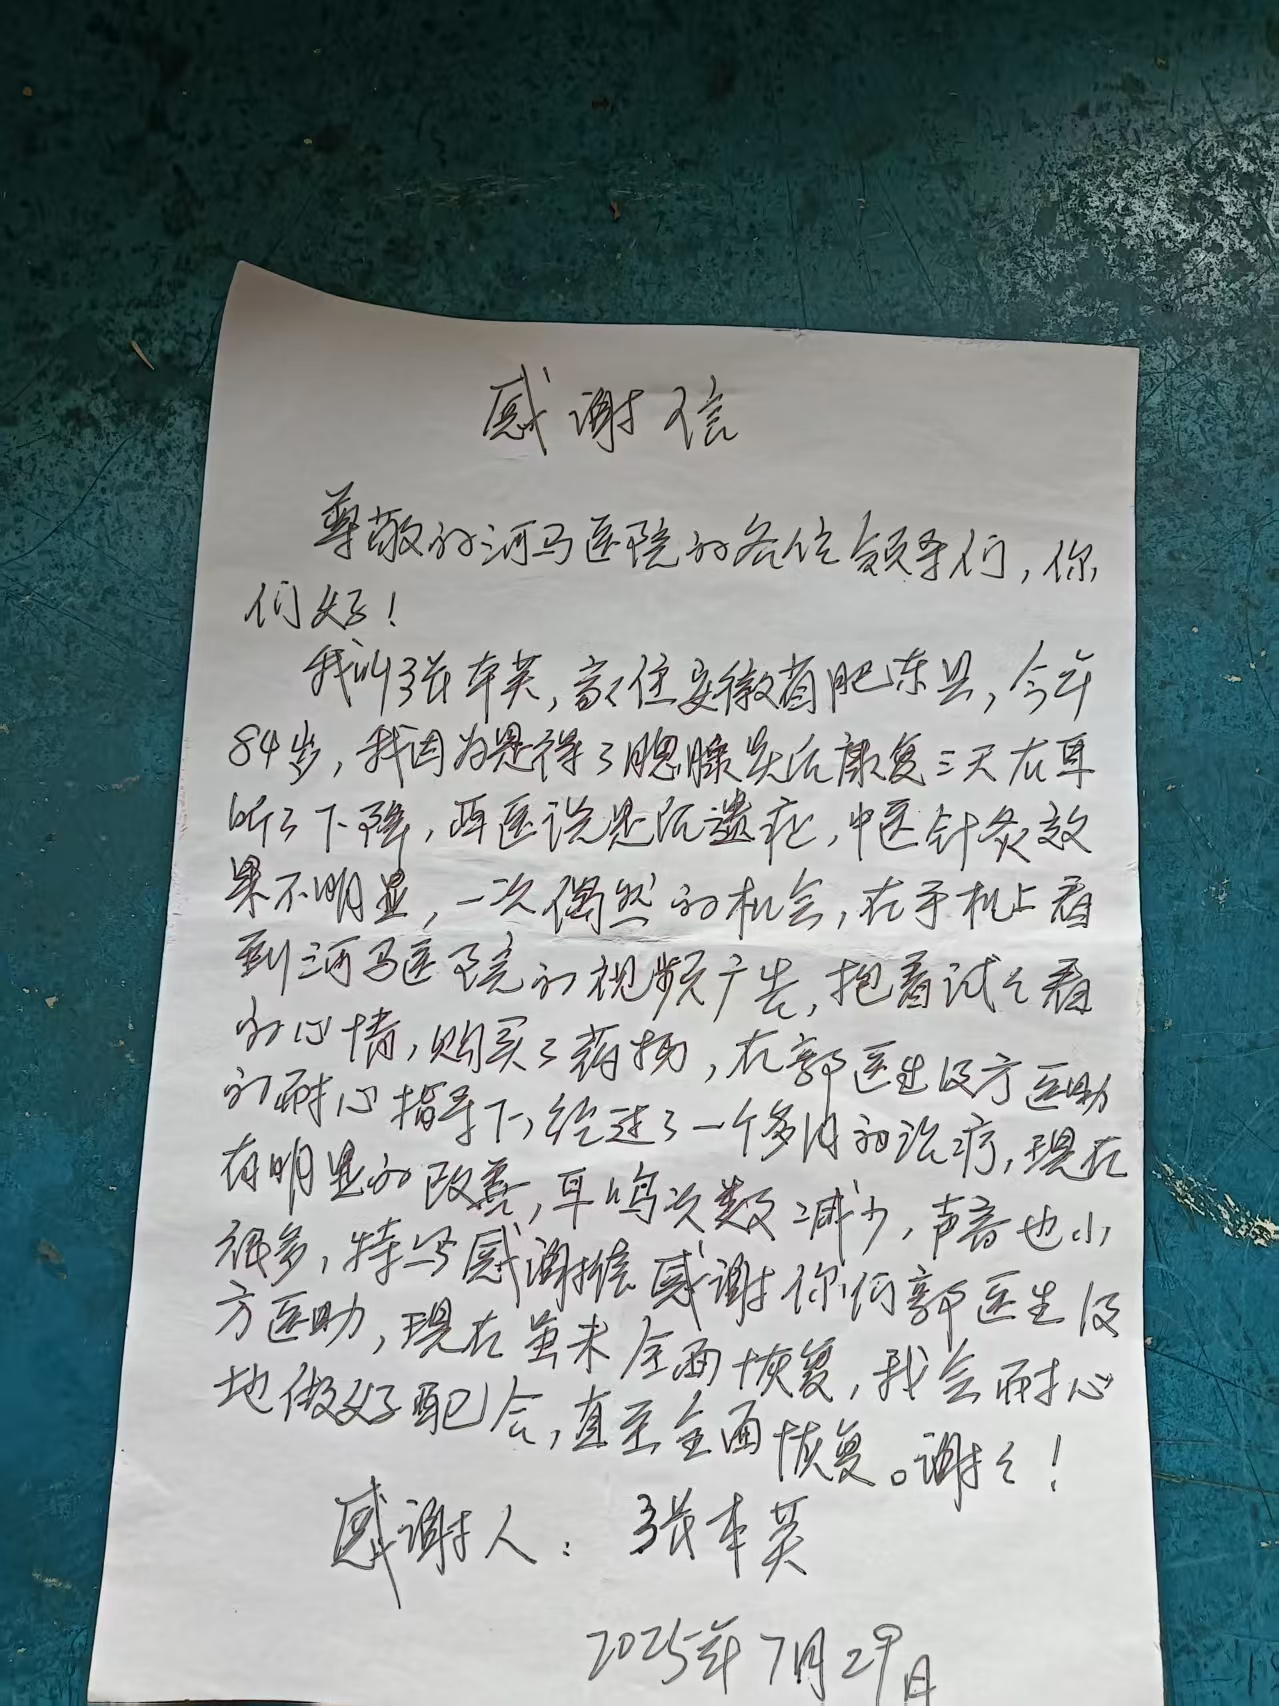 感谢信
尊敬的河马医院的各位领导们，你
们好！
我叫张本英，家住安徽省肥东县，今年
84岁，我因为患得了腮腺炎后康复三天右耳
听了下降，西医说是后遗症，中医针灸效
果不明显，一次偶然的机会，在手机上看
到河马医院的视频广告，抱着试之看
的心情，购买了药物，在郭医生及方医助
的耐心指导下，经过了一个多月的治疗，现在
有明显的改善，耳鸣次数减少，声音也小
很多，特写感谢信感谢你们郭医生及
方医助，现在虽未全面恢复，我会耐心
地做好配合，直至全面恢复。谢之！
感谢人：张本英
2025年7月29日